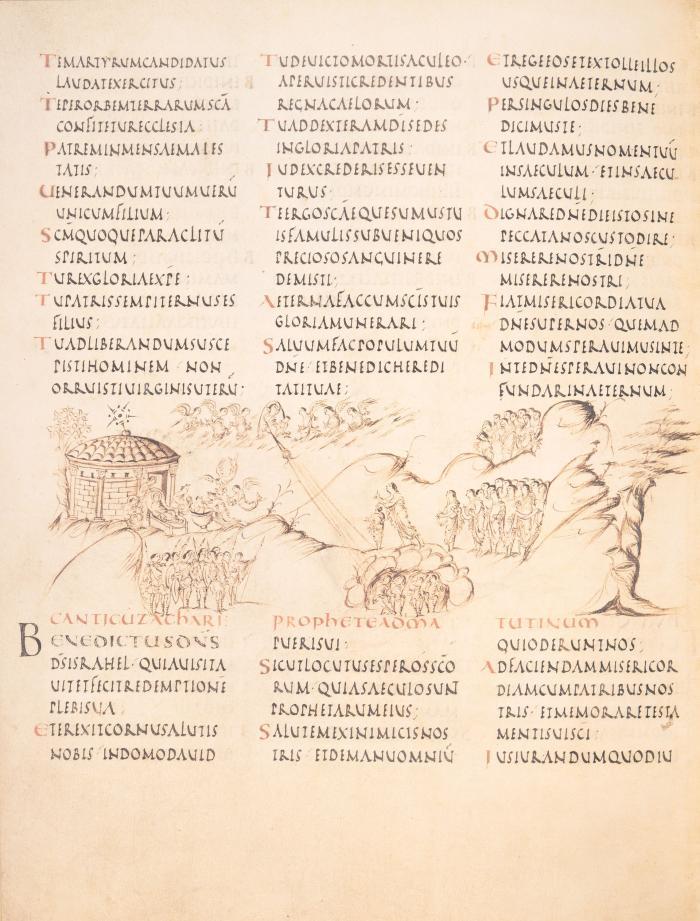 TEMARTYRUMCANDIDATUS
LAUDATEXERCITUS;
TEPERORBEMTERRARUMSCĀ
CONFITETURECCLESIA·
PATREMINMENSAEMAIES
TATIS;
UENERANDUMTUUMUERŪ
UNICUMFILIUM;
SC̄MQUOQUEPARACLITŪ
SPIRITUM;
TUREXGLORIAEXPE;
TUPATRISSEMPITERNUSES
FILIUS;
TUADLIBERANDUMSUSCE
PISTIHOMINEM · NON
ORRUISTIUIRGINISUTERŪ·
TUDEUICTOMORTISACULEO·
APERUISTICREDENTIBUS
REGNACAELORUM;
TUADDEXTERAMDĪSEDES
INGLORIAPATRIS·
IUDEXCREDERISESSEUEN
TURUS·
TEERGOSCĀEQUESUMUSTU
ISFAMULISSUBUENIQUOS
PRECIOSOSANGUINERE
DEMISTI;
AETERNAFACCUMSCĪSTUIS
GLORIAMUNERARI;
SALUUMFACPOPULUMTUŪ
DN̄E · ETBENEDICHEREDI
TATITUAE;
ETREGEEOSETEXTOLLEILLOS
USQUEINAETERNUM;
PERSINGULOSDIESBENE
DICIMUSTE;
ETLAUDAMUSNOMENTUŪ
INSAECULUM · ETINSAECU
LUMSAECULI;
DIGNAREDN̄EDIEISTOSINE
PECCATANOSCUSTODIRE;
MISERERENOSTRIDN̄E
MISERERENOSTRI;
FIATMISERICORDIATUA
DN̄ESUPERNOS · QUEMAD
MODUMSPERAUIMUSINTE;
INTEDN̄ESPERAUINONCON
FUNDARINAETERNUM;
CANTICŪZACHARIE PROPHETEADMA TUTINUM
BENEDICTUSDN̄S
DS̄ISRAHEL · QUIAUISITA
UITETFECITREDEMPTIONĒ
PLEBISUA;
ETEREXITCORNUSALUTIS
NOBIS · INDOMODAUID
PUERISUI·
SICUTLOCUTUSESPEROSSC̄O
RUM · QUIASAECULOSUNT
PROPHETARUMEIUS;
SALUTEMEXINIMICISNOS
TRIS · ETDEMANUOMNIŪ
QUIODERUNTNOS;
ADFACIENDAMMISERICOR
DIAMCUMPATRIBUSNOS
TRIS · ETMEMORARETESTA
MENTISUISCI·
IUSIURANDUMQUODIU